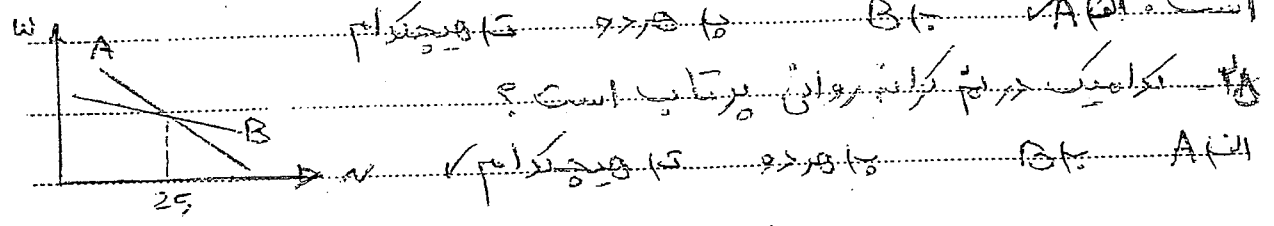 است؟ الف) A ✓ ب) B پ) هردو ت) هیچکدام
۲۸- کدامیک در رقم کرانه روانی پرتاب است؟
الف) A ب) B پ) هردو ت) هیچکدام ✓
ω
A
B
N